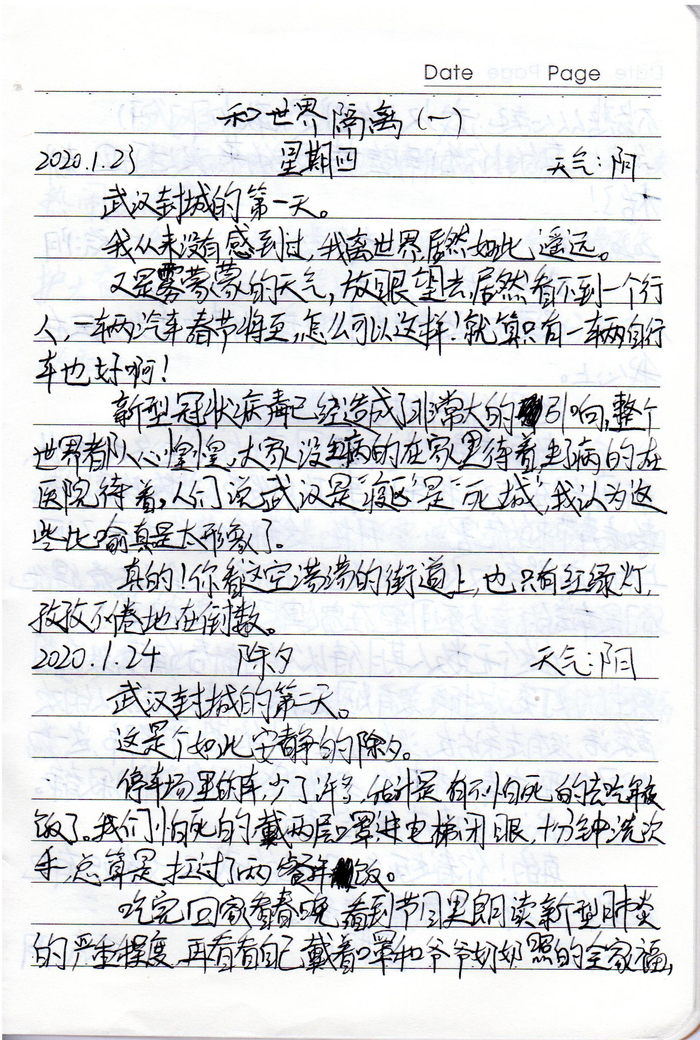 Date Page
和世界隔离(一)
2020.1.23 星期四 天气:阴
武汉封城的第一天。
我从来没有感到过,我离世界居然如此遥远。
又是雾蒙蒙的天气,放眼望去,居然看不到一个行
人,一车两汽车春节将至,怎么可以这样!就算只有一车两自行
车也好啊!
新型冠状病毒已经造成了非常大的引响,整个
世界都人心惶惶,大家没生病的在家里待着,生了病的在
医院待着。人们说武汉是"疫区"是"死城",我认为这
些比喻真是太形象了。
真的!你看这空荡荡的街道上,也只有红绿灯,
孜孜不倦地在倒数。
2020.1.24 除夕 天气:阴
武汉封城的第二天。
这是个如此安静的除夕。
停车场里的车,少了许多,估计是有不怕死的去吃年夜
饭了。我们怕死的戴两层口罩进电梯闭眼,十分钟洗次
手,总算是扛过了两餐年饭。
吃完回家看春晚,看到节目里朗读新型肺炎
的严重程度,再看看自己戴着口罩和爷爷奶奶照的全家福,